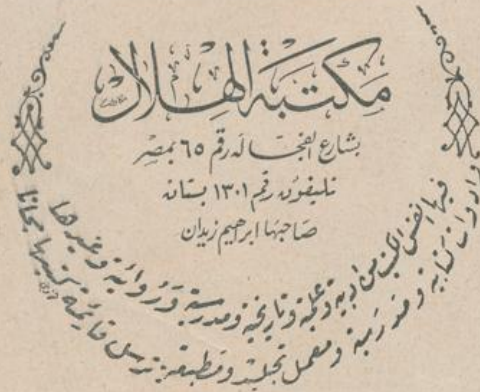 مكتبة الهلال
بشارع الفجالة رقم ٦٥ بمصر
تليفون رقم ١٣٠١ بستان
صاحبها ابرهيم زيدان
فيها انفس الكتب من ادبية وعلمية وتاريخية ومدرسية وروائية وغيرها
وادوات كتابية ومدرسية ومعمل تجليد ومطبعة: ترسل قائمة كتبها مجانا